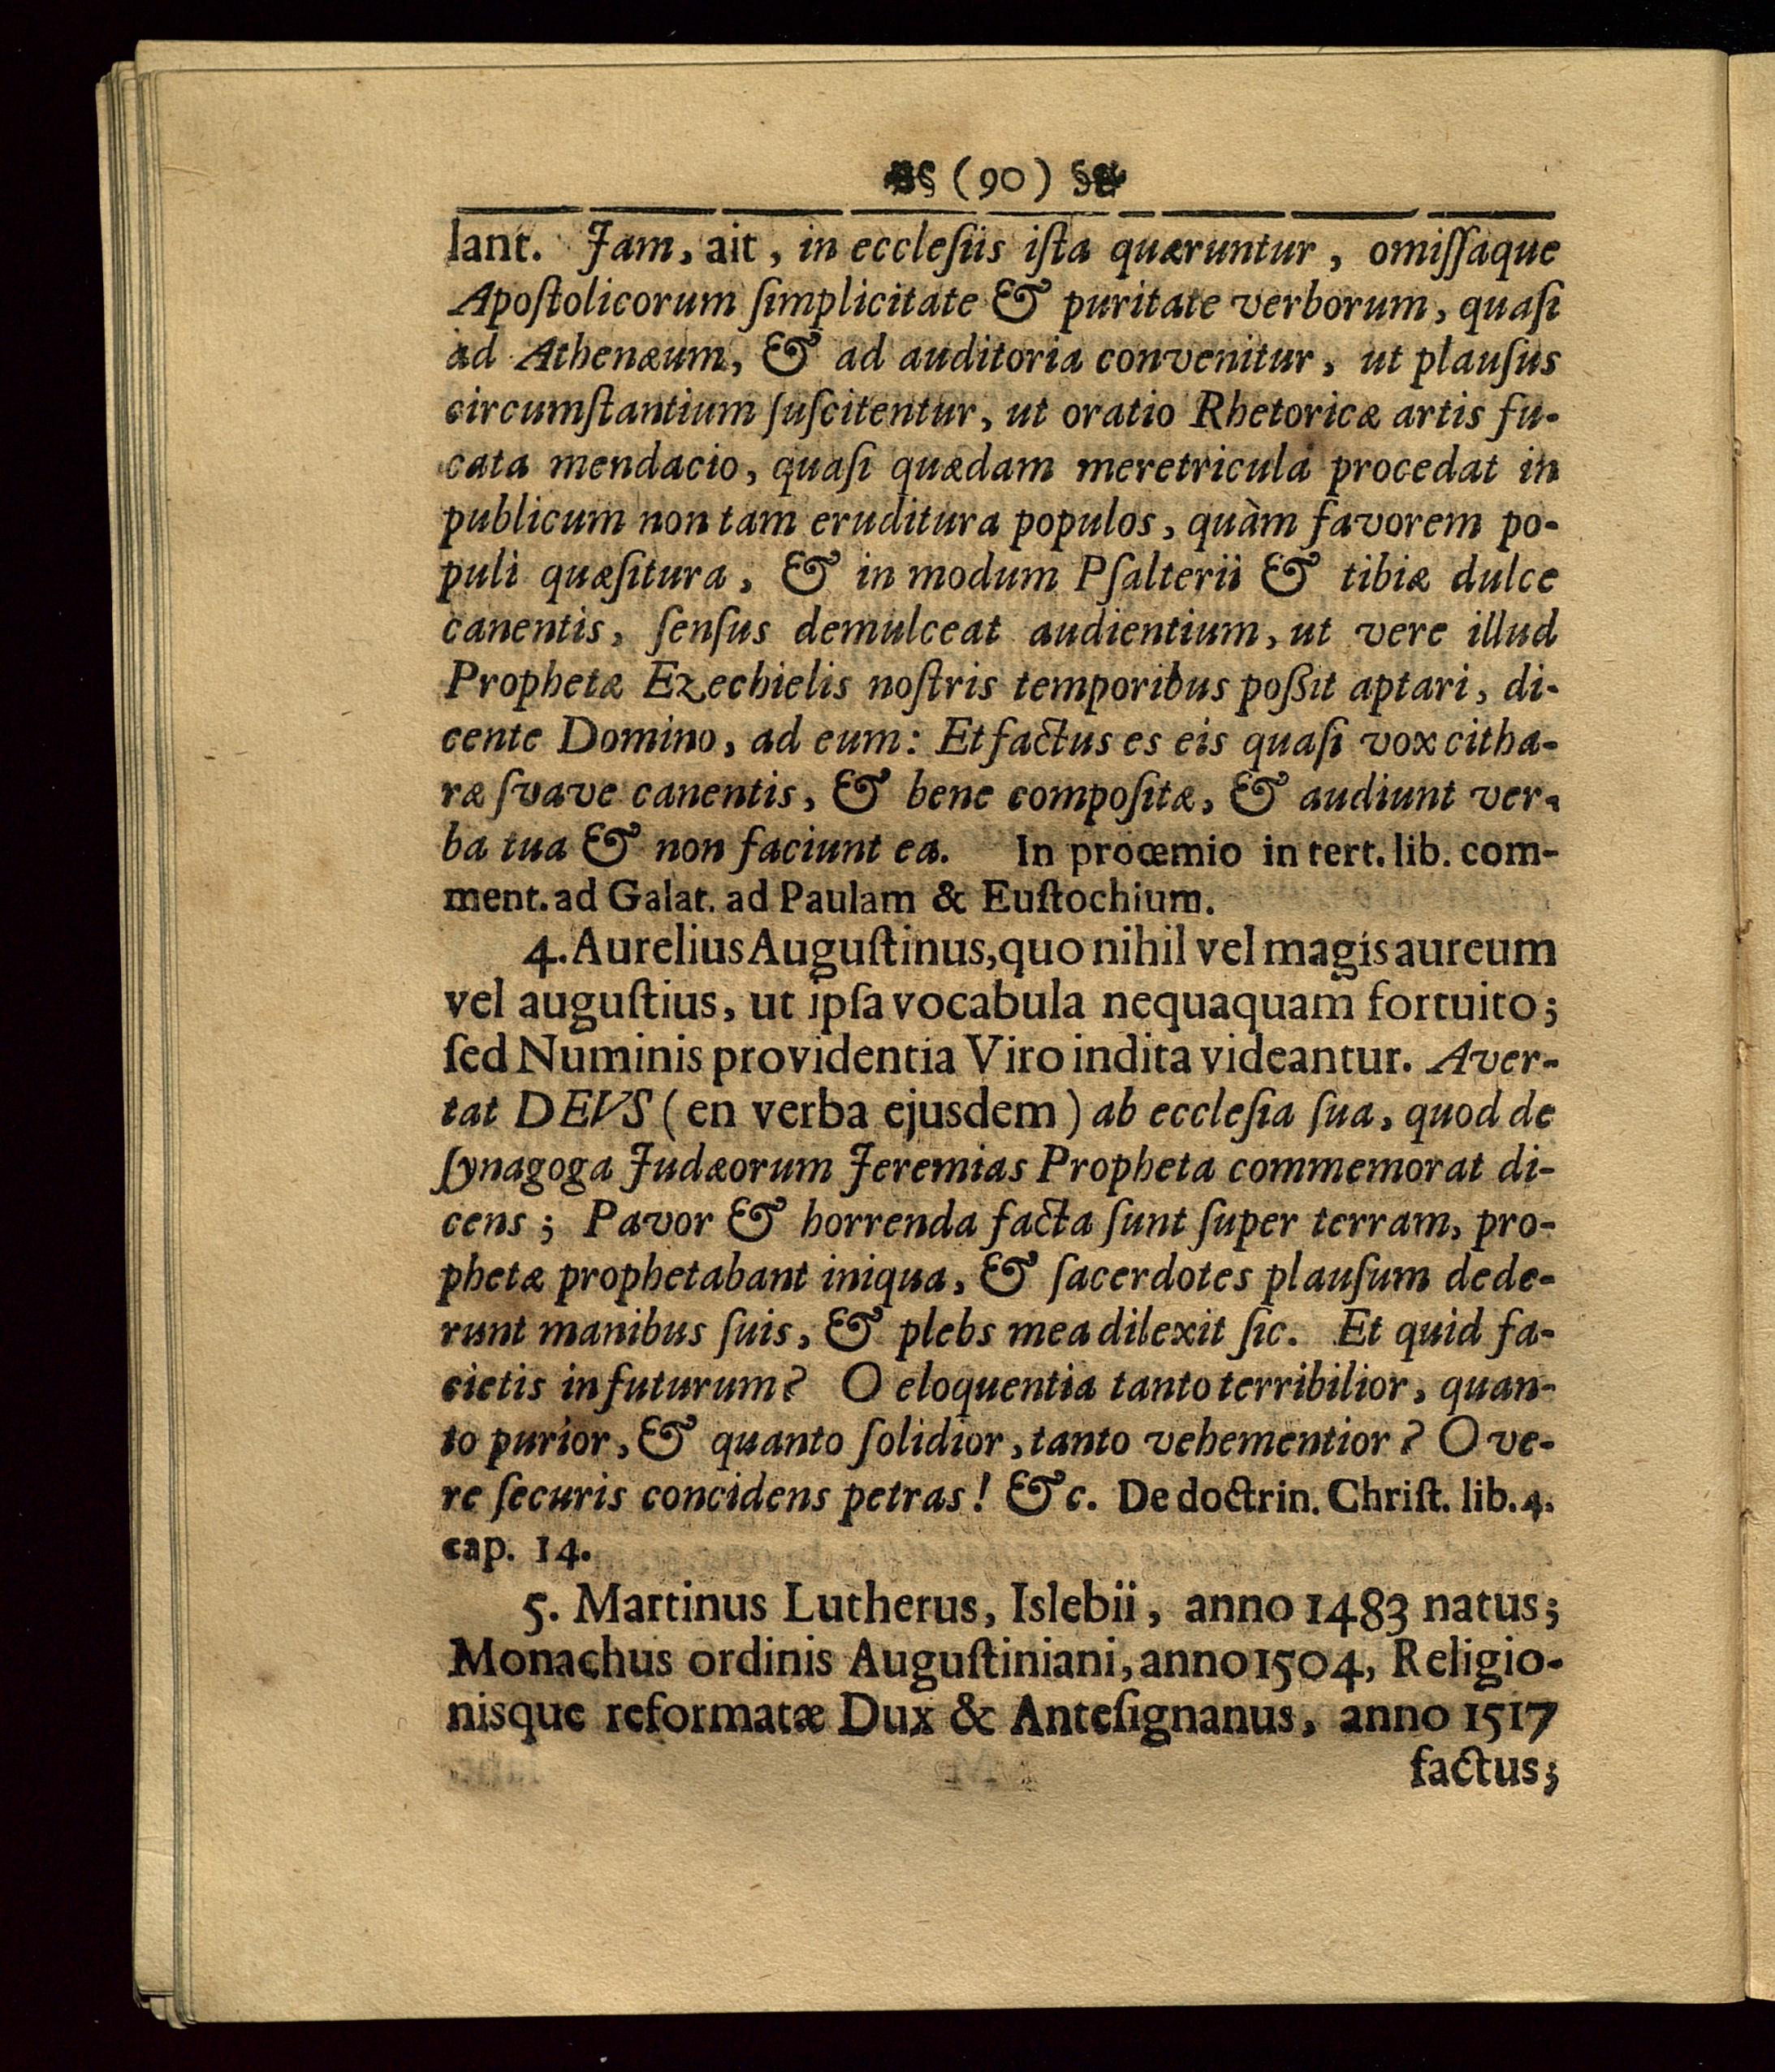 (90)
lant. Jam, ait, in eccleſiis iſta quæruntur, omiſſaque
Apoſtolicorum ſimplicitate & puritate verborum, quaſi
ad Athenæum, & ad auditoria convenitur, ut plauſus
circumſtantium ſuſcitentur, ut oratio Rhetoricæ artis fu-
cata mendacio, quaſi quædam meretricula procedat in
publicum non tam eruditura populos, quàm favorem po-
puli quæſitura, & in modum Pſalterii & tibiæ dulce
canentis, ſenſus demulceat audientium, ut vere illud
Prophetæ Ezechielis noſtris temporibus poßit aptari, di-
cente Domino, ad eum: Et factus es eis quaſi vox citha-
ræ ſvave canentis, & bene compoſitæ, & audiunt ver-
ba tua & non faciunt ea. In proœmio in tert. lib. com-
ment. ad Galat. ad Paulam & Euſtochium.
4. Aurelius Auguſtinus, quo nihil vel magis aureum
vel auguſtius, ut ipſa vocabula nequaquam fortuito;
ſed Numinis providentia Viro indita videantur. Aver-
tat DEVS (en verba ejusdem) ab eccleſia ſua, quod de
ſynagoga Judæorum Jeremias Propheta commemorat di-
cens; Pavor & horrenda facta ſunt ſuper terram, pro-
phetæ prophetabant iniqua, & ſacerdotes plauſum dede-
runt manibus ſuis, & plebs mea dilexit ſic. Et quid fa-
cietis in futurum? O eloquentia tanto terribilior, quan-
to purior, & quanto ſolidior, tanto vehementior? O ve-
re ſecuris concidens petras! &c. De doctrin. Chriſt. lib. 4.
cap. 14.
5. Martinus Lutherus, Islebii, anno 1483 natus;
Monachus ordinis Auguſtiniani, anno 1504, Religio-
nisque reformatæ Dux & Anteſignanus, anno 1517
factus;